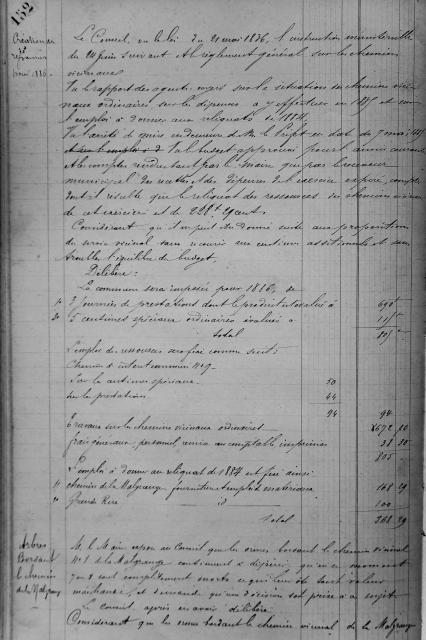 152
Création de
ressources
pour 1886
Le Conseil, vu la loi du 21 mai 1836, l'instruction ministérielle
du 24 juin suivant et le règlement général sur les chemins
vicinaux
Vu le rapport des agents voyers sur la situation des chemins vici-
naux ordinaires sur les dépenses à y effectuer en 1885 et sur
l'emploi à donner aux reliquats de 1884.
Vu l'arrêté de mise en demeure de M. le Préfet en date du 7 mai
Vu le budget approuvé pour l'année courante
Et les comptes rendus tant par le Maire que par le receveur
municipal des recettes et des dépenses de l'exercice expiré,
dont il résulte que le reliquat des ressources des chemins vicinaux
de cet exercice est de 268f 29 cent.
Considérant qu'il ne peut être donné suite aux propositions
du service vicinal sans recourir aux centimes additionnels et sans
troubler l'équilibre du budget.
Délibère :
La commune sera imposée pour 1886, de
1° 3 journées de prestations dont le produit est évalué à 690f
2° 5 centimes spéciaux ordinaires évalués à 115
total 805
L'emploi des ressources sera fixé comme suit :
Chemin d'intérêt commun n° 9
Sur les centimes spéciaux 50
Sur les prestations 44
94 94
Travaux sur les chemins vicinaux ordinaires 672 20
frais généraux, personnel, remise au comptable, imprimés 38 80
805
L'emploi à donner au reliquat de 1884 est fixé ainsi
1° chemin de la Malgrange fourniture et emploi de matériaux 168 29
2° Grande Rue d° 100
Total 268 29
Arbres
Bordant
le chemin
de la Malgrange
M. le Maire expose au Conseil que les ormes bordant le chemin vicinal
n° 1 de la Malgrange continuent à dépérir, qu'en ce moment
sont complètement morts et qu'ils ont de leur valeur
marchande, et demande qu'une décision soit prise à ce sujet
Le Conseil après en avoir délibéré
Considérant que les ormes bordant le chemin vicinal de la Malgrange